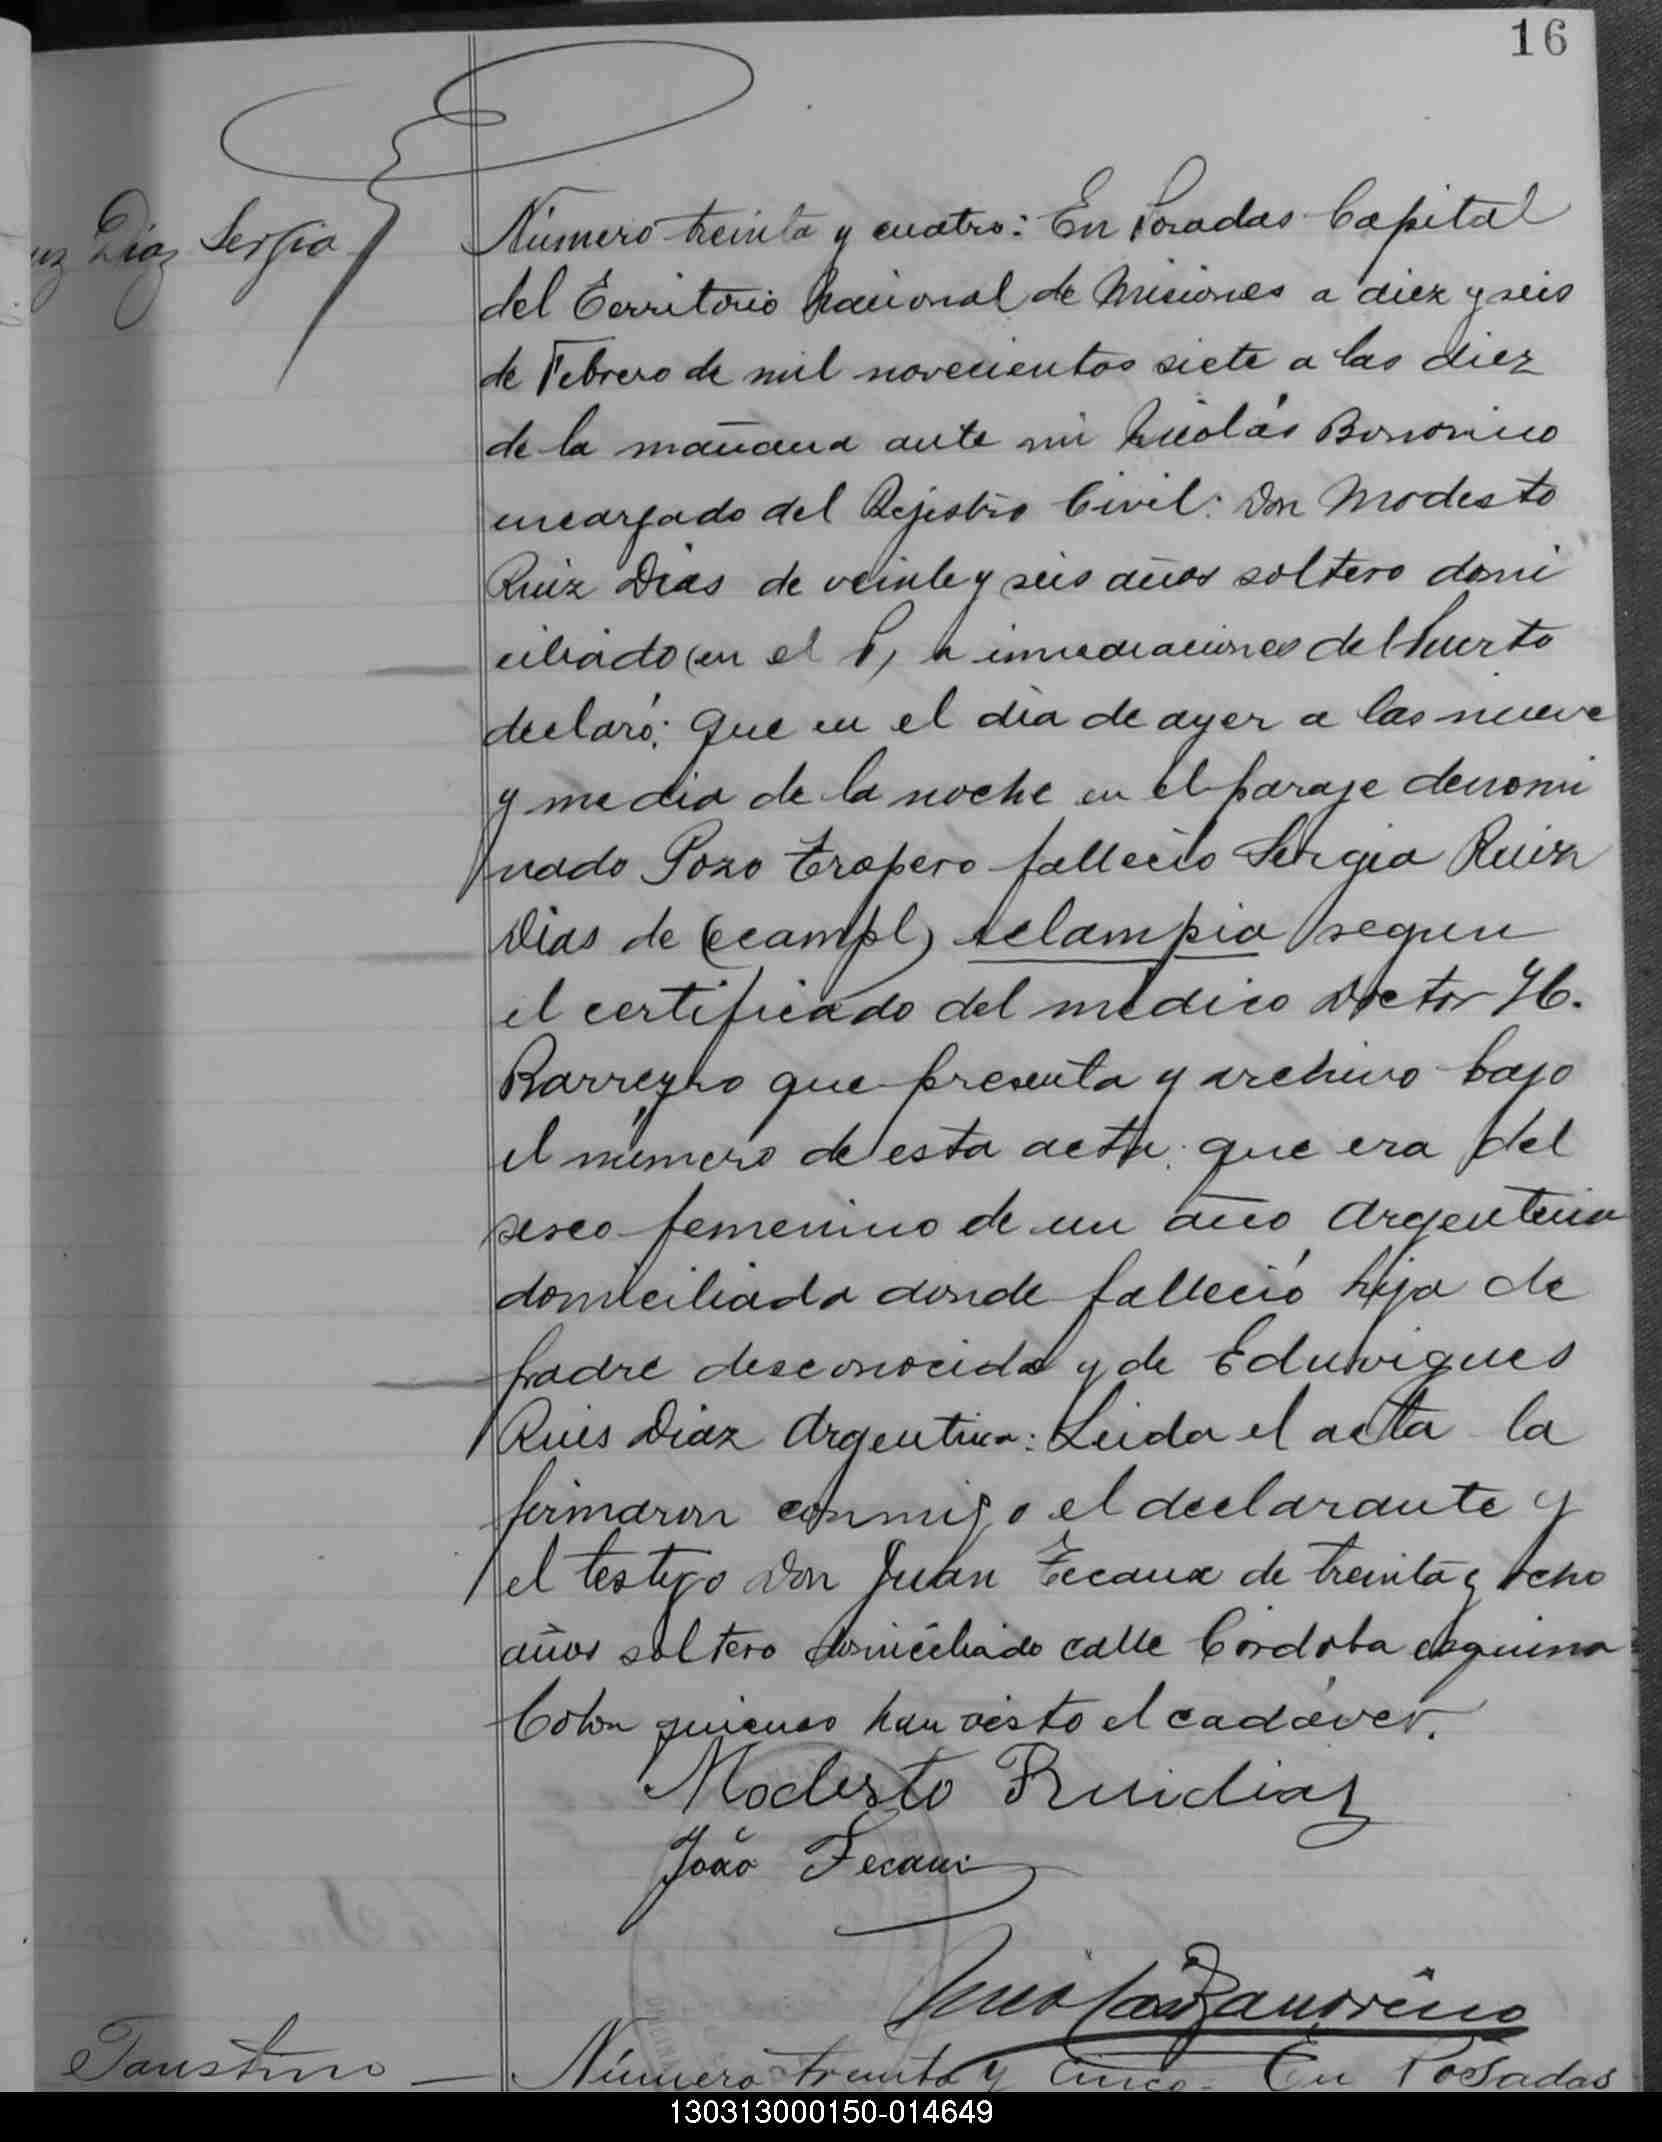 16
Diaz Sergia
Número treinta y cuatro: En Posadas Capital
del Territorio Nacional de Misiones a diez y seis
de Febrero de mil novecientos siete a las diez
de la mañana ante mi Nicolás
encargado del Rejistro Civil: Don Modesto
Ruiz Dias de veinte y seis años soltero domi
ciliado (en el P) a inmediaciones del Puerto
declaró: Que en el dia de ayer a las nueve
y media de la noche en el paraje denomi
nado Pozo tropero fallecio Sergia Ruiz
Dias de (ecampl) eclampsia segun
el certificado del medico Doctor H.
Barreyro que presenta y archivo bajo
el número de esta acta; que era del
sexo femenino de un año Argentina
domiciliada donde falleció hija de
padre desconocido y de Eduvigues
Ruis Diaz Argentina: Leida el acta la
firmaron conmigo el declarante y
el testigo Don Juan de treinta y ocho
años soltero domiciliado calle Córdoba esquina
Colon quienes han visto el cadáver.
Modesto Ruidiaz
João
Faustino — Número treinta y cinco. En Posadas
130313000150-014649